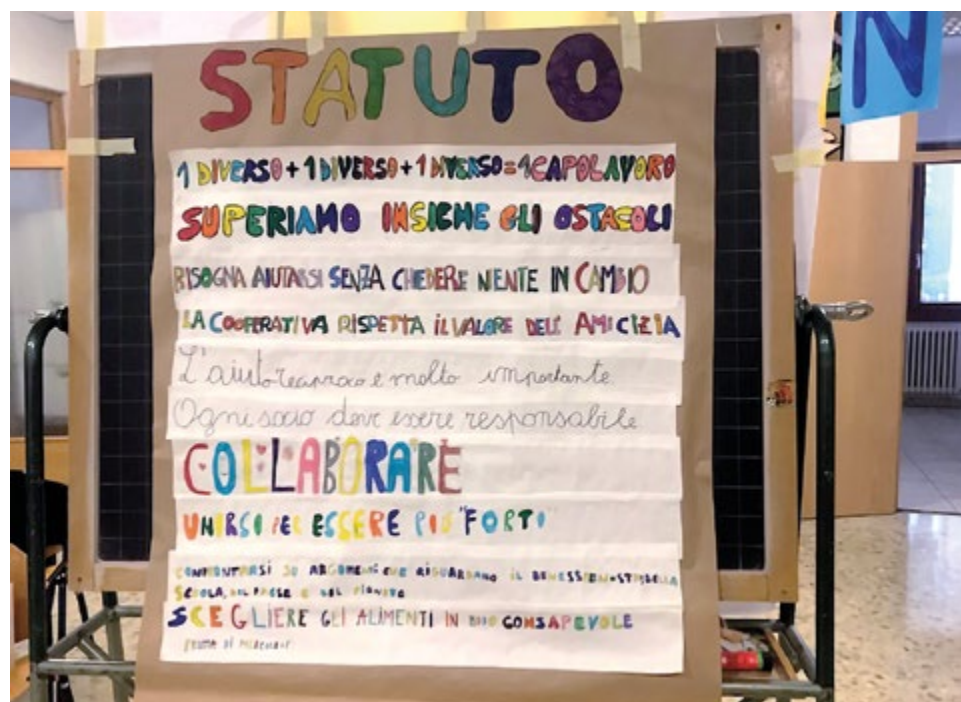 STATUTO
N
1 DIVERSO + 1 DIVERSO + 1 DIVERSO = 1 CAPOLAVORO
SUPERIAMO INSIEME GLI OSTACOLI
BISOGNA AIUTARSI SENZA CHIEDERE NIENTE IN CAMBIO
LA COOPERATIVA RISPETTA IL VALORE DELL' AMICIZIA
L'aiuto reciproco è molto importante.
Ogni socio deve essere responsabile
COLLABORARE
UNIRSI PER ESSERE PIÙ "FORTI"
CONFRONTARSI SU ARGOMENTI CHE RIGUARDANO IL DELLA
SCUOLA, DEL PAESE E DEL PIANETA
SCEGLIERE GLI ALIMENTI IN MODO CONSAPEVOLE
PRIMA DI